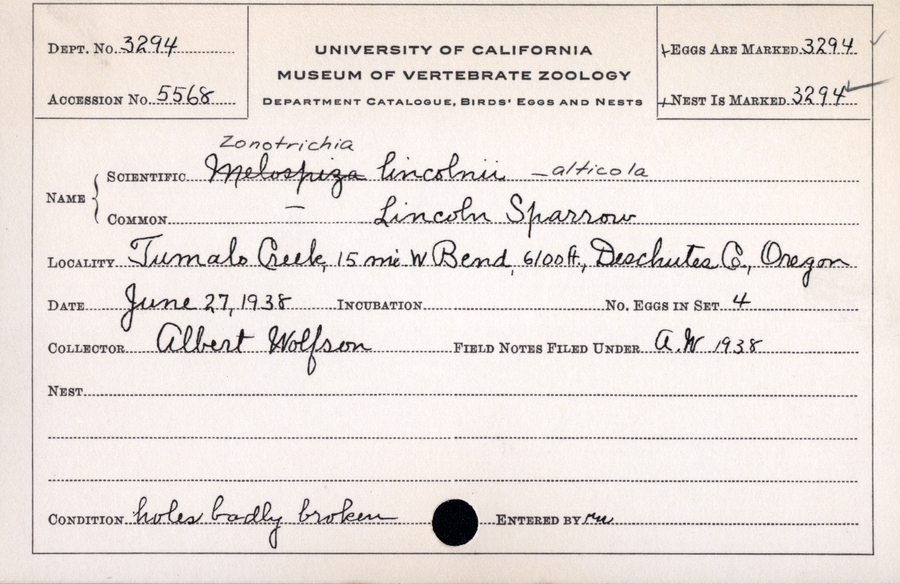 Dept. No. 3294
Accession No. 5568
UNIVERSITY OF CALIFORNIA
MUSEUM OF VERTEBRATE ZOOLOGY
Department Catalogue, Birds' Eggs and Nests
Eggs Are Marked 3294
Nest Is Marked 3294
Zonotrichia
Name { Scientific Melospiza lincolnii - alticola
Common Lincoln Sparrow
Locality Tumalo Creek, 15 mi W Bend, 6100 ft., Deschutes Co., Oregon
Date June 27, 1938 Incubation No. Eggs in Set 4
Collector Albert Wolfson Field Notes Filed Under A.W 1938
Nest
Condition holes badly broken Entered by